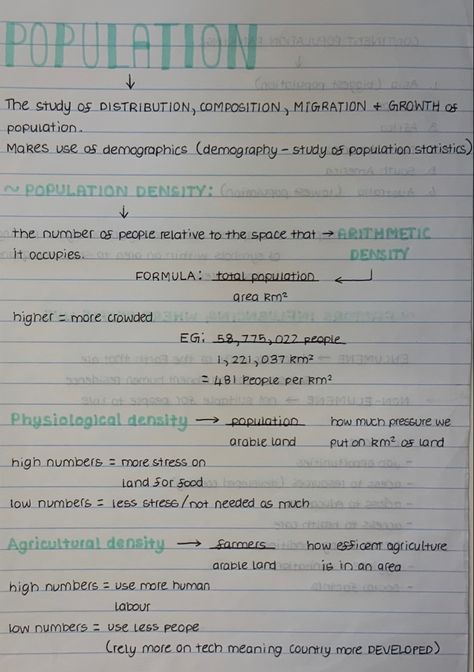 POPULATION
The study of DISTRIBUTION, COMPOSITION, MIGRATION + GROWTH of
population.
Makes use of demographics (demography - study of population statistics)
~ POPULATION DENSITY:
the number of people relative to the space that → ARITHMETIC
it occupies. DENSITY
FORMULA: total population
area km²
higher = more crowded
EG: 58,775,022 people
1,221,037 km²
= 481 people per km²
Physiological density → population how much pressure we
arable land put on km² of land
high numbers = more stress on
land for food
low numbers = less stress/not needed as much
Agricultural density → farmers how efficent agriculture
arable land is in an area
high numbers = use more human
labour
low numbers = use less peope
(rely more on tech meaning country more DEVELOPED)